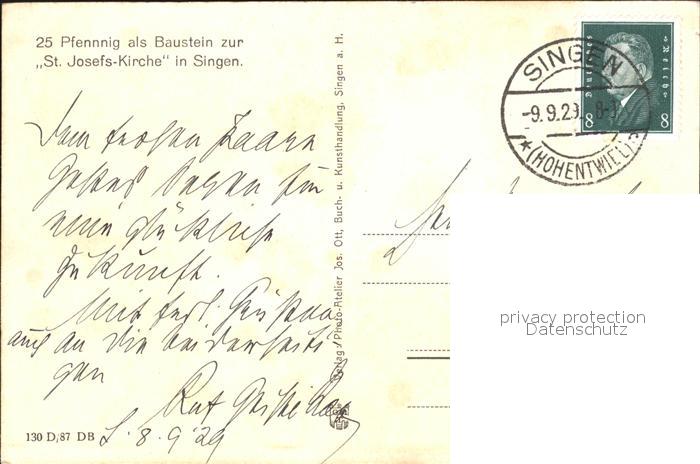 25 Pfennnig als Baustein zur
„St. Josefs-Kirche" in Singen.
Dem frohen Paare
Gottes Segen für
eine glückliche
Zukunft.
Mit herzl. Grüßen
auch an die beiderseiti-
gen
S. 8.9.29
130 D/87 DB
Verlag: Photo-Atelier Jos. Ott, Buch- u. Kunsthandlung, Singen a. H.
Deutsches Reich
8 8
SINGEN
-9.9.29. 8-
(HOHENTWIEL)
privacy protection
Datenschutz